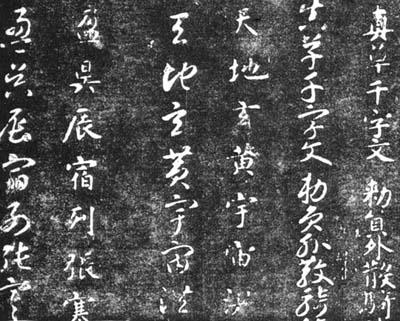 真草千字文 勅員外散騎
真草千字文勅員外散騎
天地玄黄宇宙洪
天地玄黄宇宙洪
盈昃辰宿列張寒
盈昃辰宿列張寒